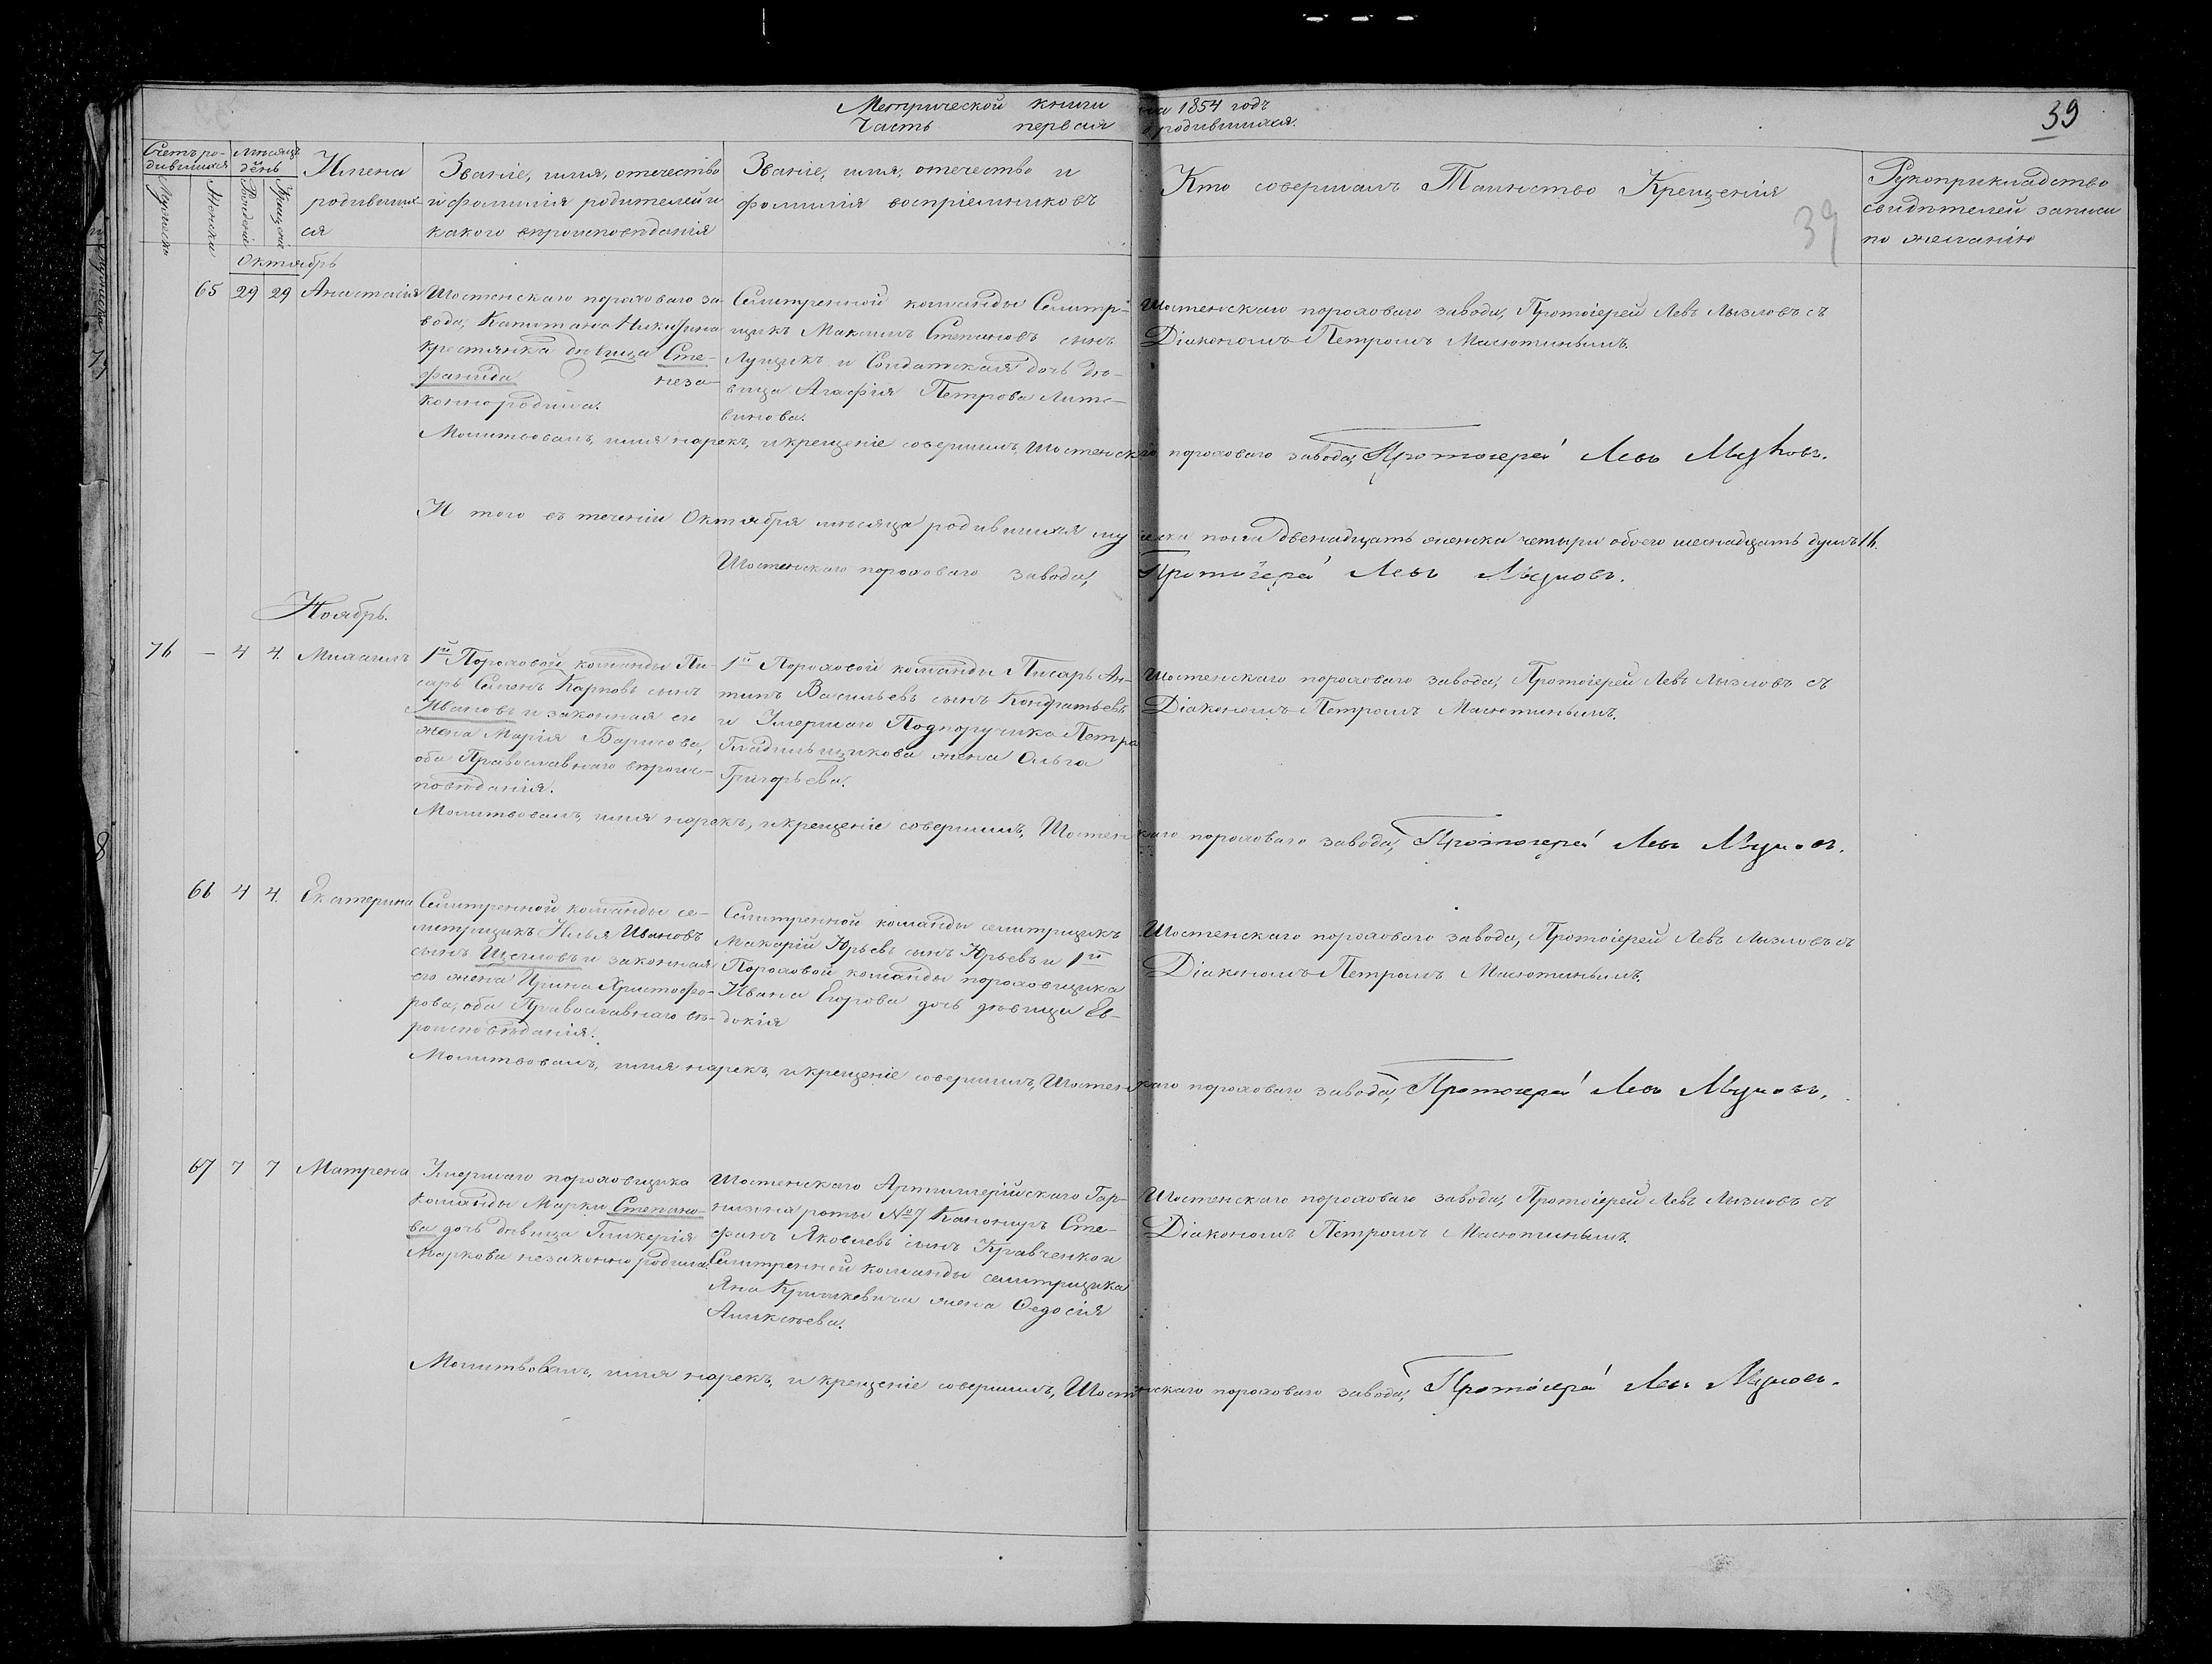 Метрической книги на 1854 годъ
Часть первая о родившихся.
39
39
Счетъ ро-
дившихся
Мѣсяцъ и
день
Мужеска
Женска
Рожденія
Крещенія
Имена
родивших-
ся
Званіе, имя, отечество
и фамилія родителей и
какого вѣроисповѣданія
Званіе, имя, отечество и
фамилія воспріемниковъ
Кто совершалъ Таинство Крещенія
Рукоприкладство
свидѣтелей записи
по желанію
Октябрь
65 29 29 Анастасія
Шостенскаго пороховаго за-
вода, Капитана Никифора
крестьянка дѣвица Сте-
фанида неза-
коннородила.
Селитренной команды Селитр-
щикъ Максимъ Степановъ сынъ
Лущикъ и Солдатская дочь дѣ-
вица Агафія Петрова Лит-
винова.
Шостенскаго пороховаго завода, Протоіерей Левъ Лызловъ съ
Діакономъ Петромъ Масютинымъ.
Молитвовалъ, имя нарекъ, и крещеніе совершилъ, Шостенскаго пороховаго завода, Протоіерей Левъ Лызловъ.
И того въ теченіи Октября мѣсяца родившихся мужеска пола двенадцать женска четыри обоего шеснадцать душъ 16.
Шостенскаго пороховаго завода, Протоіерей Левъ Лызловъ.
Ноябрь.
76 – 4 4. Михаилъ
1й Пороховой команды Пи-
сарь Семенъ Карповъ сынъ
Ивановъ и законная его
жена Марія Борисова,
оба Православнаго вѣроис-
повѣданія.
1й Пороховой команды Писарь Ан-
типъ Васильевъ сынъ Кондратьевъ
и Умершаго Подпоручика Петра
Гладильщикова жена Ольга
Григорьева.
Шостенскаго пороховаго завода, Протоіерей Левъ Лызловъ съ
Діакономъ Петромъ Масютинымъ.
Молитвовалъ, имя нарекъ, и крещеніе совершилъ, Шостенскаго пороховаго завода, Протоіерей Левъ Лызловъ.
66 4 4. Екатерина
Селитренной команды се-
литрщикъ Илья Ивановъ
сынъ Щегловъ и законная
его жена Ирина Христофо-
рова, оба Православнаго вѣ-
роисповѣданія.
Селитренной команды селитрщикъ
Макарій Юрьевъ сынъ Юрьевъ и 1й
Пороховой команды пороховщика
Ивана Егорова дочь дѣвица Ев-
докія
Шостенскаго пороховаго завода, Протоіерей Левъ Лызловъ съ
Діакономъ Петромъ Масютинымъ.
Молитвовалъ, имя нарекъ, и крещеніе совершилъ, Шостенскаго пороховаго завода, Протоіерей Левъ Лызловъ.
67 7 7 Матрена
Умершаго пороховщика
команды Марки Степано-
ва дочь дѣвица Гликерія
Маркова незаконно родила.
Шостенскаго Артиллерійскаго Гар-
низона роты №7 Канониръ Сте-
фанъ Яковлевъ сынъ Кравченко и
Селитренной команды селитрщика
Яна жена Ѳедосія
Алексѣева.
Шостенскаго пороховаго завода, Протоіерей Левъ Лызловъ съ
Діакономъ Петромъ Масютинымъ.
Молитвовалъ, имя нарекъ, и крещеніе совершилъ, Шостенскаго пороховаго завода, Протоіерей Левъ Лызловъ.